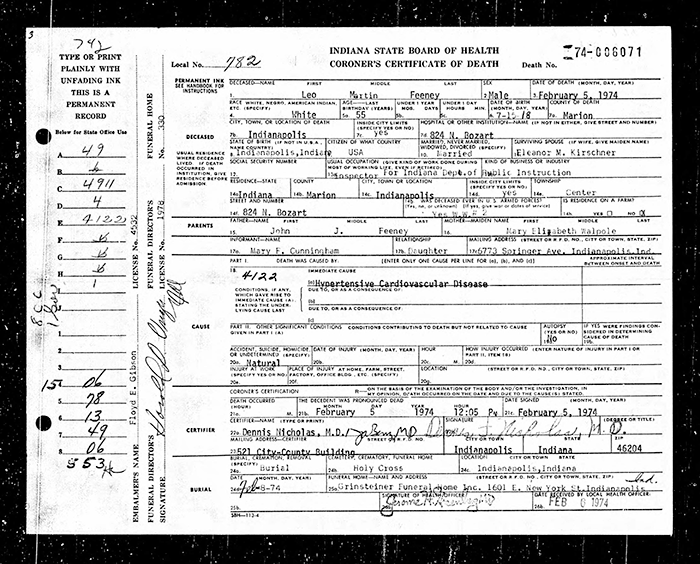 3
742
TYPE OR PRINT
PLAINLY WITH
UNFADING INK
THIS IS A
PERMANENT
RECORD
Below for State Office Use
A 49
B
C 4911
D 4
E 4122
F
G
H
I
1
2
3
4
5 06
6 78
7 13
8 49
06
INDIANA STATE BOARD OF HEALTH
CORONER'S CERTIFICATE OF DEATH
Local No. 782
Death No. 74-006071
PERMANENT INK
SEE HANDBOOK FOR
INSTRUCTIONS
FUNERAL HOME No. 330
FUNERAL DIRECTOR'S LICENSE No. 1978
FUNERAL DIRECTOR'S SIGNATURE
LICENSE No. 4532
EMBALMER'S NAME Floyd E. Gibson
DECEASED—NAME FIRST MIDDLE LAST SEX DATE OF DEATH (MONTH, DAY, YEAR)
1. Leo Martin Feeney 2. Male 3. February 5, 1974
RACE WHITE, NEGRO, AMERICAN INDIAN, ETC. (SPECIFY) AGE—LAST BIRTHDAY (YEARS) UNDER 1 YEAR UNDER 1 DAY DATE OF BIRTH COUNTY OF DEATH
4. White 5a. 55 7-15-18 7a. Marion
CITY, TOWN, OR LOCATION OF DEATH INSIDE CITY LIMITS (SPECIFY YES OR NO) HOSPITAL OR OTHER INSTITUTION—NAME (IF NOT IN EITHER, GIVE STREET AND NUMBER)
DECEASED
7b. Indianapolis 7c. yes 7d. 824 N. Bozart
USUAL RESIDENCE WHERE DECEASED LIVED. IF DEATH OCCURRED IN INSTITUTION, GIVE RESIDENCE BEFORE ADMISSION
STATE OF BIRTH (IF NOT IN U.S.A., NAME COUNTRY) CITIZEN OF WHAT COUNTRY MARRIED, NEVER MARRIED, WIDOWED, DIVORCED (SPECIFY) SURVIVING SPOUSE (IF WIFE, GIVE MAIDEN NAME)
Indianapolis, Indiana USA Married Eleanor M. Kirschner
SOCIAL SECURITY NUMBER USUAL OCCUPATION (GIVE KIND OF WORK DONE DURING MOST OF WORKING LIFE, EVEN IF RETIRED) KIND OF BUSINESS OR INDUSTRY
12. Inspector For Indiana Dept.of Public Instruction
RESIDENCE—STATE COUNTY CITY, TOWN OR LOCATION INSIDE CITY LIMITS (SPECIFY YES OR NO) TOWNSHIP
14a. Indiana 14b. Marion 14c. Indianapolis 14d. yes 14e. Center
STREET AND NUMBER WAS DECEASED EVER IN U.S. ARMED FORCES? IS RESIDENCE ON A FARM?
14f. 824 N. Bozart Yes W.W.# 2 YES NO
PARENTS
FATHER—NAME FIRST MIDDLE LAST MOTHER—MAIDEN NAME FIRST MIDDLE LAST
15. John J. Feeney 16. Mary Elizabeth Walpole
INFORMANT—NAME RELATIONSHIP MAILING ADDRESS (STREET OR R.F.D. NO., CITY OR TOWN, STATE, ZIP)
17a. Mary F. Cunningham 17b. Daughter 6773 Springer Ave. Indianapolis, Ind.
PART I. DEATH WAS CAUSED BY: [ENTER ONLY ONE CAUSE PER LINE FOR (a), (b), AND (c)] APPROXIMATE INTERVAL BETWEEN ONSET AND DEATH
18. 4122 IMMEDIATE CAUSE
(a) Hypertensive Cardiovascular Disease
CONDITIONS, IF ANY, WHICH GAVE RISE TO IMMEDIATE CAUSE (A) STATING THE UNDERLYING CAUSE LAST
DUE TO, OR AS A CONSEQUENCE OF:
DUE TO, OR AS A CONSEQUENCE OF:
CAUSE
PART II. OTHER SIGNIFICANT CONDITIONS CONDITIONS CONTRIBUTING TO DEATH BUT NOT RELATED TO CAUSE GIVEN IN PART I (A) AUTOPSY IF YES WERE FINDINGS CONSIDERED IN DETERMINING CAUSE OF DEATH
No
ACCIDENT, SUICIDE, HOMICIDE, OR UNDETERMINED (SPECIFY) DATE OF INJURY (MONTH, DAY, YEAR) HOUR HOW INJURY OCCURRED (ENTER NATURE OF INJURY IN PART I OR PART II, ITEM 18)
20a. Natural
INJURY AT WORK PLACE OF INJURY AT HOME, FARM, STREET, FACTORY, OFFICE BLDG., ETC. (SPECIFY) LOCATION (STREET OR R.F.D. NO., CITY OR TOWN, STATE, ZIP)
CORONER'S CERTIFICATION: ON THE BASIS OF THE EXAMINATION OF THE BODY AND/OR THE INVESTIGATION, IN MY OPINION, DEATH OCCURRED ON THE DATE AND DUE TO THE CAUSE(S) STATED.
DEATH OCCURRED (HOUR) THE DECEDENT WAS PRONOUNCED DEAD MONTH DAY YEAR HOUR DATE SIGNED (MONTH, DAY, YEAR)
21a. M. 21b. February 5 1974 12:05 PM 21c. February 5, 1974
CERTIFIER
CERTIFIER—NAME (TYPE OR PRINT) SIGNATURE (DEGREE OR TITLE)
22a. Dennis Nicholas, M.D. M.D.
MAILING ADDRESS—CERTIFIER STREET OR R.F.D. NO. CITY OR TOWN STATE ZIP
23. 521 City-County Building Indianapolis Indiana 46204
BURIAL, CREMATION, REMOVAL (SPECIFY) CEMETERY, CREMATORY, FUNERAL HOME—NAME LOCATION CITY OR TOWN STATE
24a. Burial 24b. Holy Cross 24c. Indianapolis, Indiana
BURIAL
DATE (MONTH, DAY, YEAR) FUNERAL HOME—NAME AND ADDRESS (STREET OR R.F.D. NO., CITY OR TOWN, STATE, ZIP)
24d. Feb-8-74 25a. Grinsteiner Funeral Home Inc. 1601 E. New York St. Indianapolis Ind.
SIGNATURE OF HEALTH OFFICER DATE RECEIVED BY LOCAL HEALTH OFFICER
25b. 26a. 26b. FEB 6 1974
SBH-112-4